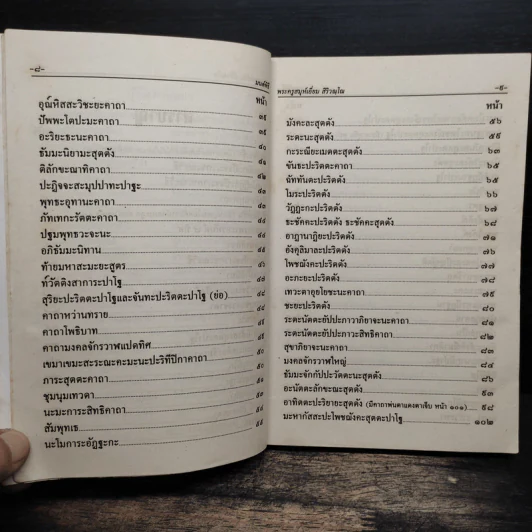 -๘-
มนต์พิธี
หน้า
อุณ๎หิสสะวิชะยะคาถา ๓๕
ปัพพะโตปะมะคาถา ๓๙
อะริยะธะนะคาถา ๔๐
ธัมมะนิยามะสุตตัง ๔๑
ติลักขะณาทิคาถา ๔๒
ปะฏิจจะสะมุปปาทะปาฐะ ๔๓
พุทธะอุทานะคาถา ๔๓
ภัทเทกะรัตตะคาถา ๔๔
ปฐมพุทธะวะจะนะ ๔๕
อภิธัมมะนิทาน ๔๕
ท้ายมหาสะมะยะสูตร ๔๘
ท๎วัตติงสาการะปาโฐ ๔๘
สุริยะปะริตตะปาโฐและจันทะปะริตตะปาโฐ (ย่อ) ๔๙
คาถาหว่านทราย ๔๙
คาถาโพธิบาท ๔๙
คาถามงคลจักรวาฬแปดทิศ ๕๐
เขมาเขมะสะระณะคะมะนะปะริทีปิกาคาถา ๕๐
ภาระสุตตะคาถา ๕๐
ชุมนุมเทวดา
นะมะการะสิทธิคาถา
สัมพุทเธ ๕๕
นะโมการะอัฏฐะกะ ๕๕
พระครูสมุห์เอี่ยม สิริวณฺโณ
-๙-
หน้า
มังคะละสุตตัง ๕๖
ระตะนะสุตตัง ๕๙
กะระณียะเมตตะสุตตัง ๖๓
ขันธะปะริตตะคาถา ๖๕
ฉัททันตะปะริตตัง ๖๕
โมระปะริตตัง ๖๖
วัฏฏะกะปะริตตัง ๖๗
ธะชัคคะปะริตตัง ธะชัคคะสุตตัง ๖๘
อาฏานาฏิยะปะริตตัง ๗๑
อังคุลิมาละปะริตตัง ๗๗
โพชฌังคะปะริตตัง ๗๗
อะภะยะปะริตตัง ๗๘
เทวะตาอุยโยชะนะคาถา ๗๙
ชะยะปะริตตัง ๘๐
ระตะนัตตะยัปปะภาวาภิยาจะนะคาถา ๘๑
ระตะนัตตะยัปปะภาวะสิทธิคาถา ๘๒
สุขาภิยาจะนะคาถา ๘๓
มงคลจักรวาฬใหญ่ ๘๔
ธัมมะจักกัปปะวัตตะนะสุตตัง ๘๖
อะนัตตะลักขะณะสุตตัง ๙๓
อาทิตตะปะริยายะสุตตัง (มีคาถาพ่นตาแดงตาเจ็บ หน้า ๑๐๑) ๙๘
มะหากัสสะปะโพชฌังคะสุตตะปาโฐ ๑๐๒